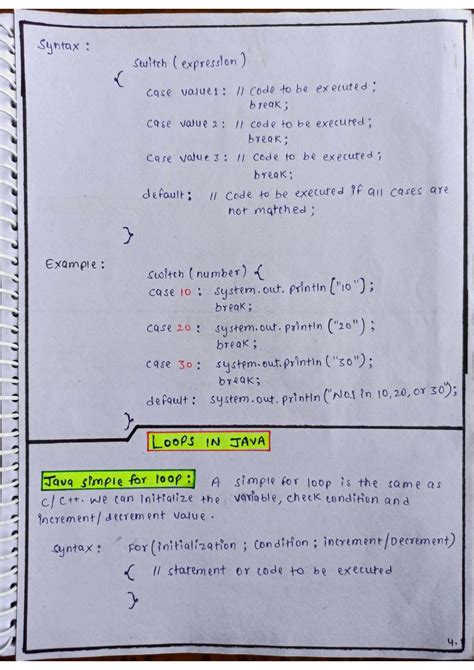 Syntax :
switch (expression)
{
case value1 : // code to be executed ;
break ;
case value 2 : // code to be executed ;
break ;
case value 3 : // code to be executed ;
break ;
default : // code to be executed if all cases are
not matched ;
}
Example :
switch (number) {
case 10 : system.out.println ("10") ;
break ;
case 20 : system.out.println ("20") ;
break ;
case 30 : system.out.println ("30") ;
break ;
default : system.out.println ("No.1 in 10, 20, or 30") ;
}
LOOPS IN JAVA
Java simple for loop : A simple for loop is the same as
C/C++. We can initialize the variable, check condition and
increment/decrement value .
Syntax : For (initialization ; condition ; increment/Decrement)
{ // statement or code to be executed
}